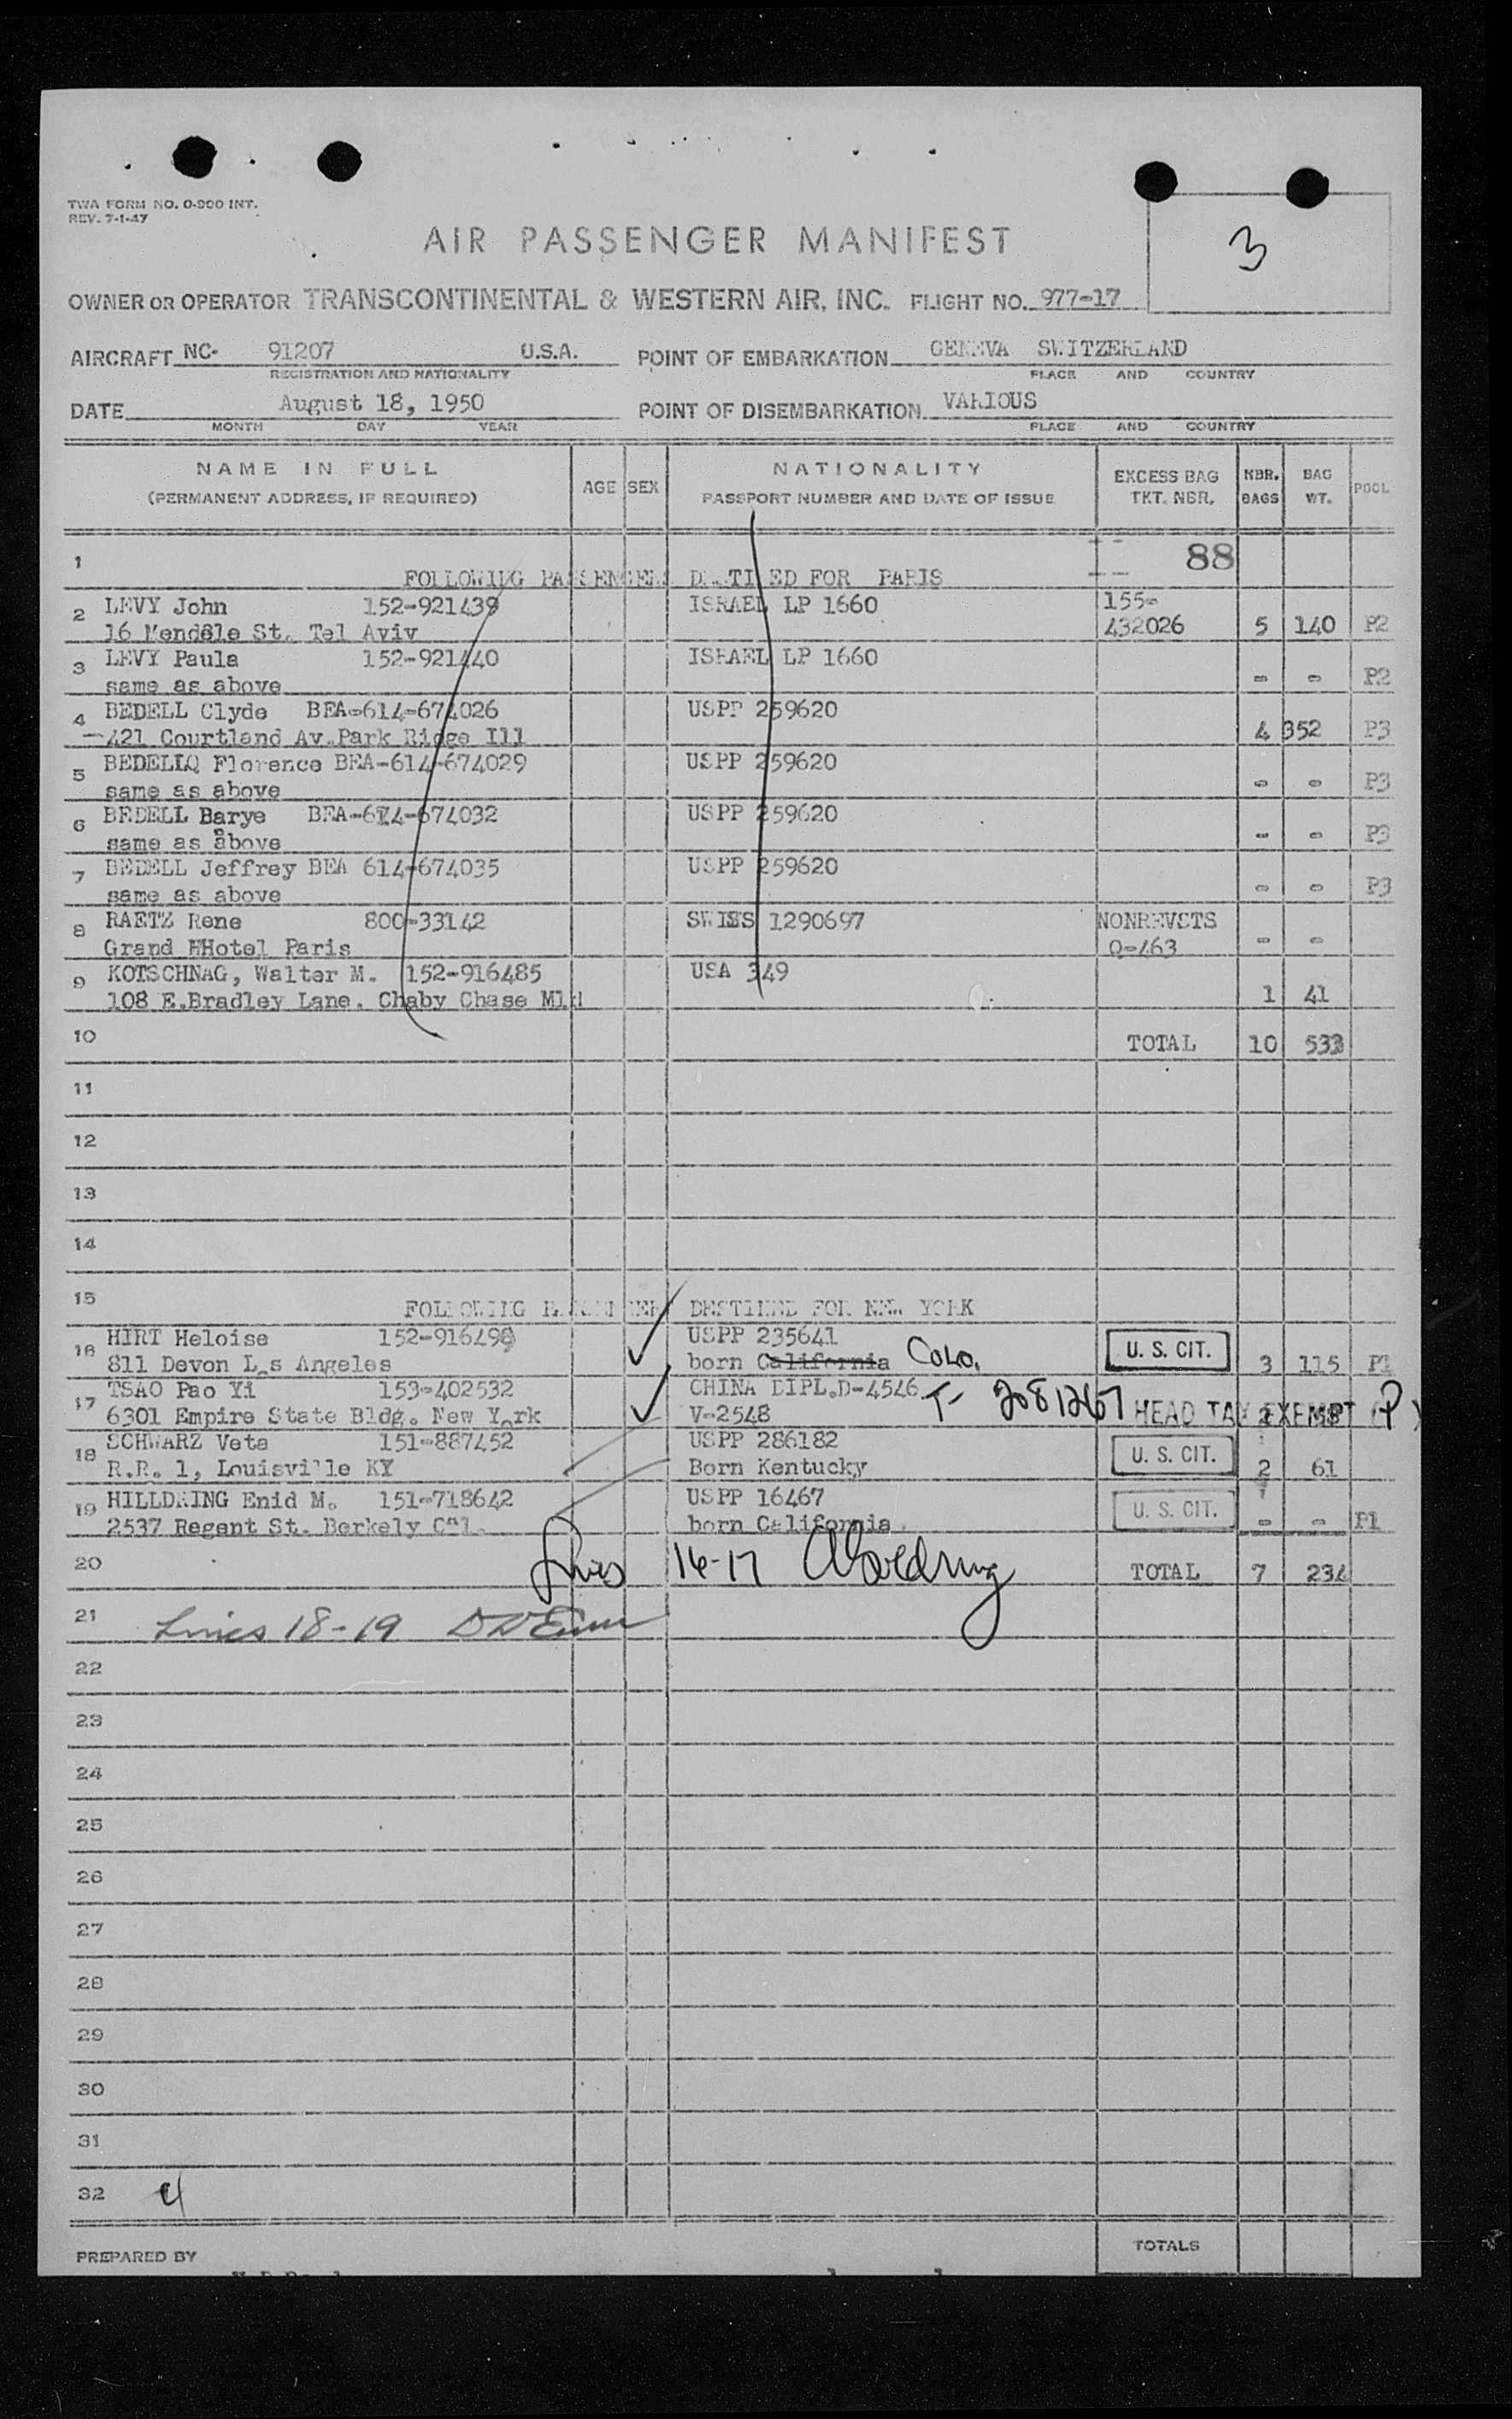 TWA FORM NO. 0-900 INT.
REV. 7-1-47
3
AIR PASSENGER MANIFEST
OWNER OR OPERATOR TRANSCONTINENTAL & WESTERN AIR, INC. FLIGHT NO. 977-17
AIRCRAFT NC- 91207 U.S.A. POINT OF EMBARKATION GENEVA SWITZERLAND
REGISTRATION AND NATIONALITY PLACE AND COUNTRY
DATE August 18, 1950 POINT OF DISEMBARKATION VARIOUS
MONTH DAY YEAR PLACE AND COUNTRY
NAME IN FULL AGE SEX NATIONALITY EXCESS BAG NBR. BAG POOL
(PERMANENT ADDRESS, IF REQUIRED) PASSPORT NUMBER AND DATE OF ISSUE TKT. NBR. BAGS WT.
1 88
FOLLOWING PASSENGERS DESTINED FOR PARIS
2 LEVY John 152-921439 ISRAEL LP 1660 155-
16 Mendele St. Tel Aviv 432026 5 140 P2
3 LEVY Paula 152-921440 ISRAEL LP 1660
same as above - - P2
4 BEDELL Clyde BEA-614-674026 USPP 259620
421 Courtland Av.Park Ridge Ill 4 352 P3
5 BEDELLQ Florence BEA-614-674029 USPP 259620
same as above - - P3
6 BEDELL Barye BEA-614-674032 USPP 259620
same as above - - P3
7 BEDELL Jeffrey BEA 614-674035 USPP 259620
same as above - - P3
8 RAETZ Rene 800-33142 SWISS 1290697 NONREVSTS
Grand HHotel Paris O-463 - -
9 KOTSCHNAG, Walter M. 152-916485 USA 349
108 E.Bradley Lane. Chaby Chase Mld 1 41
10 TOTAL 10 533
11
12
13
14
15
FOLLOWING PASSENGERS DESTINED FOR NEW YORK
16 HIRT Heloise 152-916498 USPP 235641
811 Devon Los Angeles born California COLO. U. S. CIT. 3 115 P1
17 TSAO Pao Yi 153-402532 CHINA DIPL.D-4546 T- 2081267
6301 Empire State Bldg. New York V-2548 HEAD TAX EXEMPT (P)
18 SCHWARZ Veta 151-887452 USPP 286182
R.R. 1, Louisville KY Born Kentucky U. S. CIT. 2 61
19 HILLDRING Enid M. 151-718642 USPP 16467
2537 Regent St. Berkely Cal. born California U. S. CIT. - - P1
20 Lines 16-17 TOTAL 7 234
21 Lines 18-19
22
23
24
25
26
27
28
29
30
31
32 4
PREPARED BY TOTALS